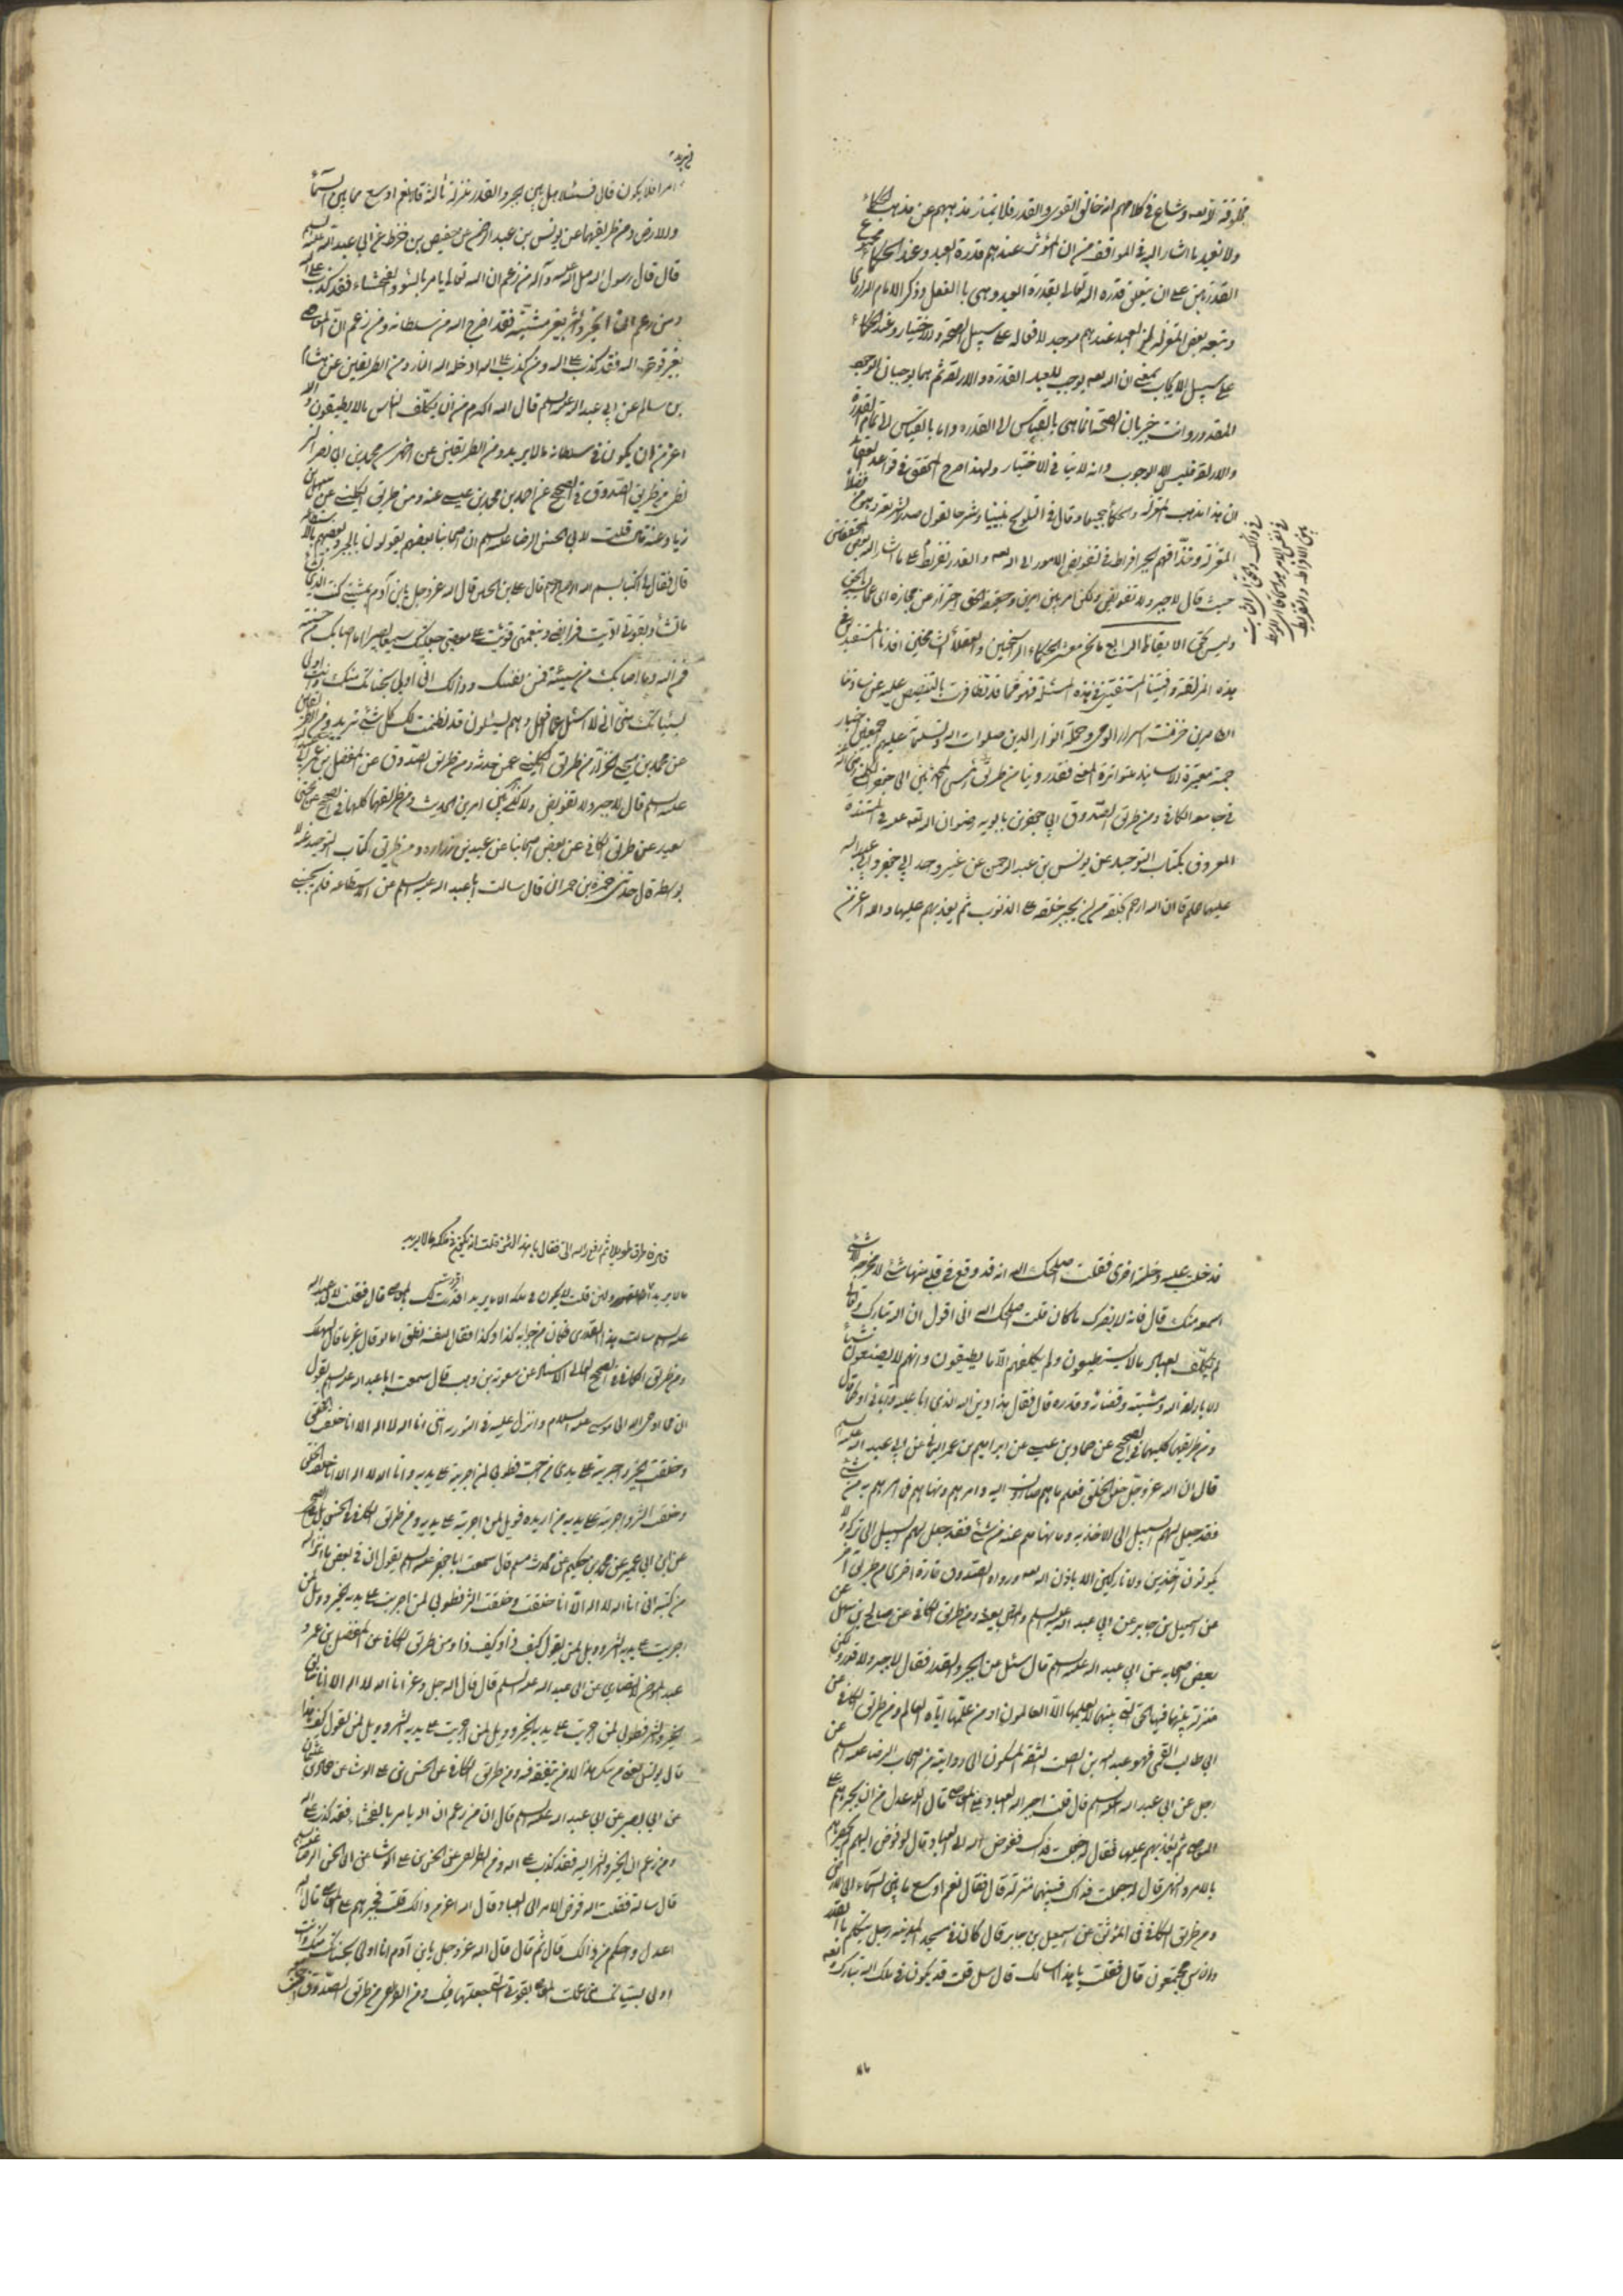 مخلوقة لله تعه وشاع في كلامهم انه خالق القوى والقدر فلا يمتاز مذهبهم عن مذهب الحكماء
ولا نفيد ما اشار اليه في المواقف من ان المؤثر عندهم قدرة العبد وعند الحكماء مجموع
القدرتين على ان يتعلق قدرة الله تعالى بقدرة العبد وهي بالفعل وذكر الامام الرازي
وتبعه بعض المعتزلة ان العبد عندهم موجد لافعاله على سبيل الصحة والاختيار وعند الحكماء
على سبيل الايجاب بمعنى ان الله تعه يوجب للعبد القدرة والارادة ثم هما يوجبان الوجود
المقدور وانت خبير بان الصحة انما هي بالقياس الى القدرة واما بالقياس الى تمام القدرة
والارادة فليس الا الوجوب وانه لا ينافي الاختيار ولهذا صرح المحقق في قواعد العقائد
ان هذا مذهب المعتزلة والحكماء جميعا وقال في التلويح
المعتزلة وحذاقهم الجبر افراط في تفويض الامور الى الله تعه والقدر تفريط على ما اشار اليه بعض المحققين
حيث قال لا جبر ولا تفويض ولكن امر بين امرين
وليس يحق الايقاظ الرابع ما نحن معشر الحكماء الراسخين والعقلاء
هذه المزلقة
الطاهرين خزنة اسرار الوحي وحملة انوار الدين صلوات الله وتسليماته عليهم اجمعين اخبار
جمة معتبرة الاسانيد متواترة المعنى فقد روينا من طريق رئيس المحدثين ابي جعفر الكليني رضي الله عنه
في جامعه الكافي ومن طريق الصدوق ابي جعفر بن بابويه رضوان الله تعه عليه في المستندة
المعروف بكتاب التوحيد عن يونس بن عبد الرحمن عن غير واحد ابي جعفر وابي عبد الله
عليهما السلم قالا ان الله ارحم بخلقه من ان يجبر خلقه على الذنوب ثم يعذبهم عليها والله اعز من
ان يريد
امرا فلا يكون قال فسئلا هل بين الجبر والقدر منزلة ثالثة قالا نعم اوسع مما بين السماء
والارض ومن طريقهما عن يونس بن عبد الرحمن عن حفص بن قرط عن ابي عبد الله عليه السلم
قال قال رسول الله صلى الله عليه وآله من زعم ان الله تعالى يامر بالسوء والفحشاء فقد كذب على الله
ومن زعم ان الخير والشر بغير مشيته فقد اخرج الله من سلطانه ومن زعم ان المعاصي
بغير قوة الله فقد كذب على الله ومن كذب على الله ادخله الله النار ومن الطريقين عن هشام
بن سالم عن ابي عبد الله عليه السلم قال الله اكرم من ان يكلف الناس ما لا يطيقون والله
اعز من ان يكون في سلطانه ما لا يريد ومن الطريقين عن احمد بن محمد بن ابي نصر البز
نطي من طريق الصدوق في الصحيح عن احمد بن محمد بن عيسى عنه ومن طريق الكليني عن سهل بن
زياد عنه قال قلت لابي الحسن الرضا عليه السلم ان اصحابنا بعضهم يقولون بالجبر وبعضهم بالاستطاعة
قال فقال لي اكتب بسم الله الرحمن الرحيم قال علي بن الحسين قال الله عز وجل يابن آدم بمشيتي كنت انت الذي
ما تشاء وبقوتي اديت فرائضي وبنعمتي قويت على معصيتي جعلتك سميعا بصيرا ما اصابك من حسنة
فمن الله وما اصابك من سيئة فمن نفسك وذلك اني اولى بحسناتك منك وانت اولى
بسيئاتك مني اني لا اسئل عما افعل وهم يسئلون قد نظمت لك كل شئ تريد
عن محمد بن يحيى الخزاز من طريق الكليني عمن حدثه ومن طريق الصدوق عن المفضل بن عمر
عليه السلم قال لا جبر ولا تفويض ولكن امر بين امرين الحديث ومن طريقهما كليهما في الصحيح
بعيد عن طريق الكافي عن بعض اصحابنا عن عبيد بن زرارة ومن طريق كتاب التوحيد
بواسطة قال حدثني حمزة بن حمران قال سالت ابا عبد الله عليه السلم عن الاستطاعة فلم يجبني
فدخلت عليه دخلة اخرى فقلت اصلحك الله انه قد وقع في قلبي منها شئ لا يخرجه الا شئ
اسمعه منك قال فانه لا يضرك ما كان قلت اصلحك الله اني اقول ان الله تبارك وتعالى
لم يكلف العباد ما لا يستطيعون ولم يكلفهم الا ما يطيقون وانهم لا يصنعون شيئا
الا بارادة الله ومشيته وقضائه وقدره قال فقال هذا دين الله الذي انا عليه وآبائي او كما قال
ومن طريقهما كليهما في الصحيح عن حماد بن عيسى عن ابراهيم بن عمر اليماني عن ابي عبد الله عليه السلم
قال ان الله عز وجل خلق الخلق فعلم ما هم صائرون اليه وامرهم ونهاهم فما امرهم به من شئ
فقد جعل لهم السبيل الى الاخذ به وما نهاهم عنه من شئ فقد جعل لهم السبيل الى تركه ولا
يكونون آخذين ولا تاركين الا باذن الله تعه ورواه الصدوق تارة اخرى من طريق آخر
عن اسمعيل بن جابر عن ابي عبد الله عليه السلم ومن طريق الكافي عن صالح بن سهل عن
بعض اصحابه عن ابي عبد الله عليه السلم قال سئل عن الجبر والقدر فقال لا جبر ولا قدر ولكن
منزلة بينهما فيها الحق التي بينهما لا يعلمها الا العالم او من علمها اياه العالم ومن طريق الكافي عن
ابي طالب القمي فهو عبد الله بن الصلت الثقة المسكون الى روايته من اصحاب الرضا عليه السلم عن
رجل عن ابي عبد الله عليه السلم قال قلت اجبر الله العباد على المعاصي قال الله اعدل من ان يجبرهم على
المعاصي ثم يعذبهم عليها فقال له جعلت فداك ففوض الله الى العباد قال لو فوض اليهم لم يحصرهم
بالامر والنهي قال له جعلت فداك فبينهما منزلة قال فقال نعم اوسع ما بين السماء الى الارض
ومن طريق الكافي في الموثق عن اسمعيل بن جابر قال كان في مسجد المدينة رجل يتكلم بالقدر
والناس مجتمعون قال فقلت يا هذا اسالك قال سل قلت قد يكون في ملك الله تبارك وتعه
ما لا يريد
فاطرق طويلا ثم رفع راسه الي فقال يا هذا لئن قلت انه يكون في ملكه ما لا يريد
ولئن قلت لا يكون في ملكه الا ما يريد اقررت لك بالمعاصي قال فقلت لابي عبد الله
عليه السلم سالت هذا القدري فكان من جوابه كذا وكذا فقال لنفسه نظر اما لو قال غير ما قال لهلك
ومن طريق الكافي في الصحيح العالي الاسناد عن معوية بن وهب قال سمعت ابا عبد الله عليه السلم يقول
ان مما اوحى الله الى موسى عليه السلام وانزل عليه في التورية انني انا الله لا اله الا انا خلقت الخلق
وخلقت الخير واجريته على يدي من احب فطوبى لمن اجريته على يديه وانا الله لا اله الا انا خلقت الخلق
وخلقت الشر واجريته على يدي من اريده فويل لمن اجريته على يديه ومن طريق الكافي في الحسن
عن ابن ابي عمير عن محمد بن حكيم عن محمد بن مسلم قال سمعت ابا جعفر عليه السلم يقول ان في بعض ما انزل الله
من كتبه اني انا الله لا اله الا انا خلقت الخير وخلقت الشر فطوبى لمن اجريت على يديه الخير وويل لمن
اجريت على يديه الشر وويل لمن يقول كيف ذا وكيف ذا ومن طريق الكافي عن المفضل بن عمر و
عبد المؤمن الانصاري عن ابي عبد الله عليه السلم قال قال الله جل وعز انا الله لا اله الا انا خالق
الخير والشر فطوبى لمن اجريت على يديه الخير وويل لمن اجريت على يديه الشر وويل لمن يقول كيف هذا
قال يونس يعني من ينكر هذا الامر بتفقه فيه ومن طريق الكافي عن الحسن بن علي الوشاء عن حماد بن عثمان
عن ابي بصير عن ابي عبد الله عليه السلم قال ان من زعم ان الله يامر بالفحشاء فقد كذب على الله
ومن زعم ان الخير والشر اليه فقد كذب على الله ومن الطريق عن الحسن بن علي الوشاء عن ابي الحسن الرضا عليه السلم
قال سالته فقلت الله فوض الامر الى العباد قال الله اعز من ذلك قلت فجبرهم على المعاصي قال الله
اعدل واحكم من ذلك قال ثم قال قال الله عز وجل يابن آدم انا اولى بحسناتك منك وانت
اولى بسيئاتك مني عملت المعاصي بقوتي التي جعلتها فيك ومن طريق الصدوق